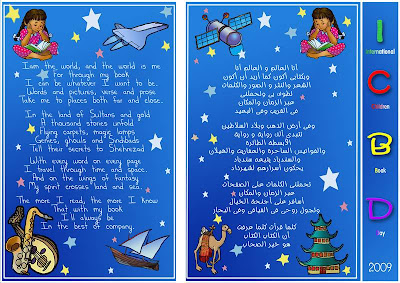 I am the world, and the world is me
For through my book
I can be whatever I want to be.
Words and pictures, verse and prose
Take me to places both far and close.
In the land of Sultans and gold
A thousand stories unfold
Flying carpets, magic lamps
Genies, ghouls and Sindbads
Tell their secrets to Shehrezad
With every word on every page
I travel through time and space.
And on the wings of fantasy
My spirit crosses land and sea.
The more I read, the more I know
That with my book
I'll always be
In the best of company.
أنا العالم و العالم أنا
وبكتابي أكون كما أريد أن أكون
الشعر والنثر و الصور والكلمات
تطوف بي وتحملني
عبر الزمان والمكان
في القرب وفي البعيد
وفي أرض الذهب وبلاد السلاطين
تتبدى ألف رواية و رواية
الأبسطة الطائرة
والفوانيس الساحرة والعفاريت والغيلان
والسندباد يتبعه سندباد
يحكون أسرارهم لشهرزاد
تحملني الكلمات على الصفحات
عبر الزمان والمكان
أسافر على أجنحة الخيال
وتجول روحي في الفيافي وفي البحار
كلما قرأت كلما عرفت
أن الكتاب الكتاب
هو خير الصحاب
I
International
C
Children
B
Book
D
Day
2009